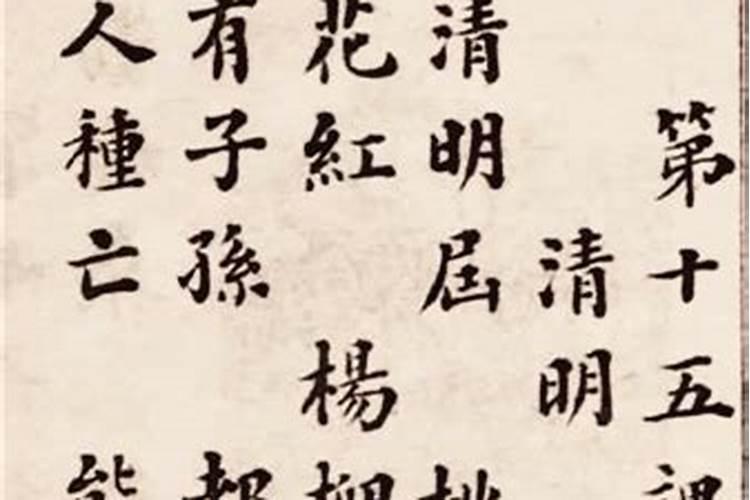 第十五課
清明
清明屆 桃
花紅 楊柳
有子孫
人種亡 能